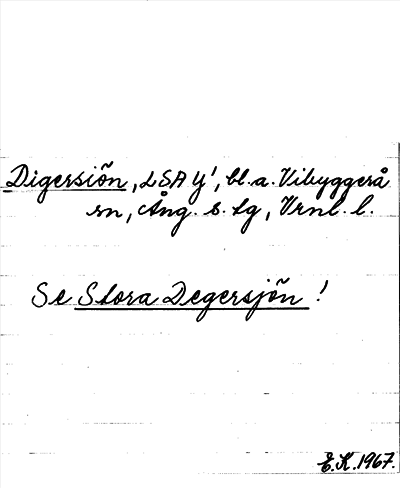 Digersiõn, LSA Y', bl.a. Vibyggerå
sn, Ång. s. tg, Vrnl. l.
Se Stora Degersjõn!
E.K. 1967.